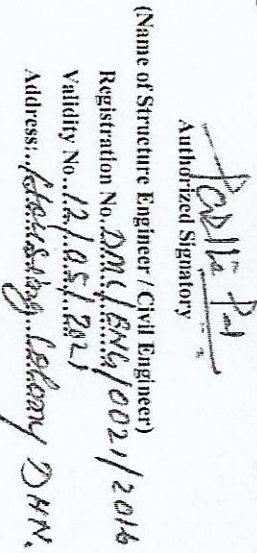 Authorized Signatory
(Name of Structure Engineer / Civil Engineer)
Registration No. DMC/ENG/0021/2016
Validity No...12/05/2021
Address:..Housing..Colony DHN.